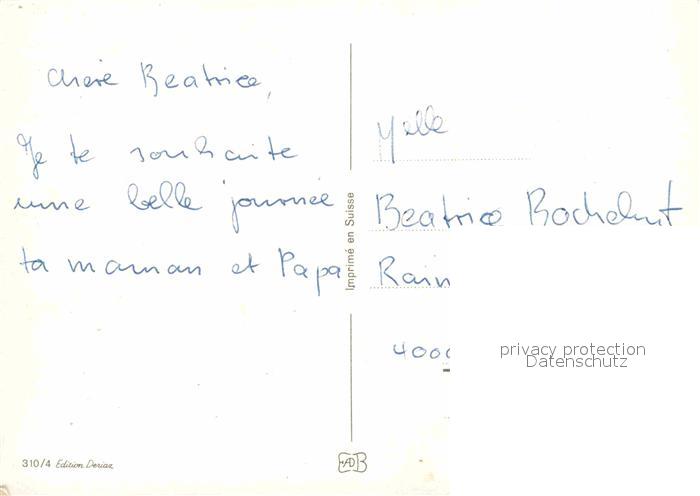 Chère Beatrice,
Je te souhaite
une belle journée
ta maman et Papa
Imprimé en Suisse
Melle
Beatrice
Rain
4000
privacy protection
Datenschutz
310/4 Edition Deriaz